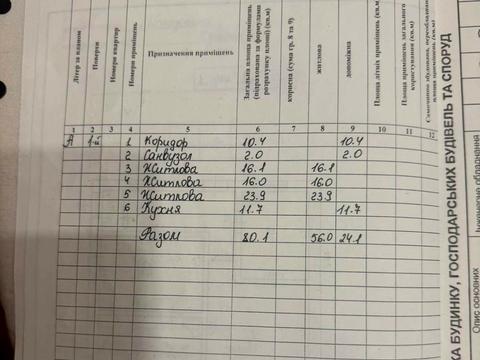 Літер за планом
Поверхи
Номери квартир
Номери приміщень
Призначення приміщень
Загальна площа приміщень
(підрахована за формулами
розрахунку площі) (кв.м)
корисна (сума гр. 8 та 9)
житлова
допоміжна
Площа літніх приміщень (кв.м)
Площа приміщень загального
користування (кв.м)
1 2 3 4 5 6 7 8 9 10 11 12
А 1-й 1 Коридор 10.4 10.4
2 Санвузол 2.0 2.0
3 Житлова 16.1 16.1
4 Житлова 16.0 16.0
5 Житлова 23.9 23.9
6 Кухня 11.7 11.7
Разом 80.1 56.0 24.1
КА БУДИНКУ, ГОСПОДАРСЬКИХ БУДІВЕЛЬ ТА СПОРУД
Опис основних